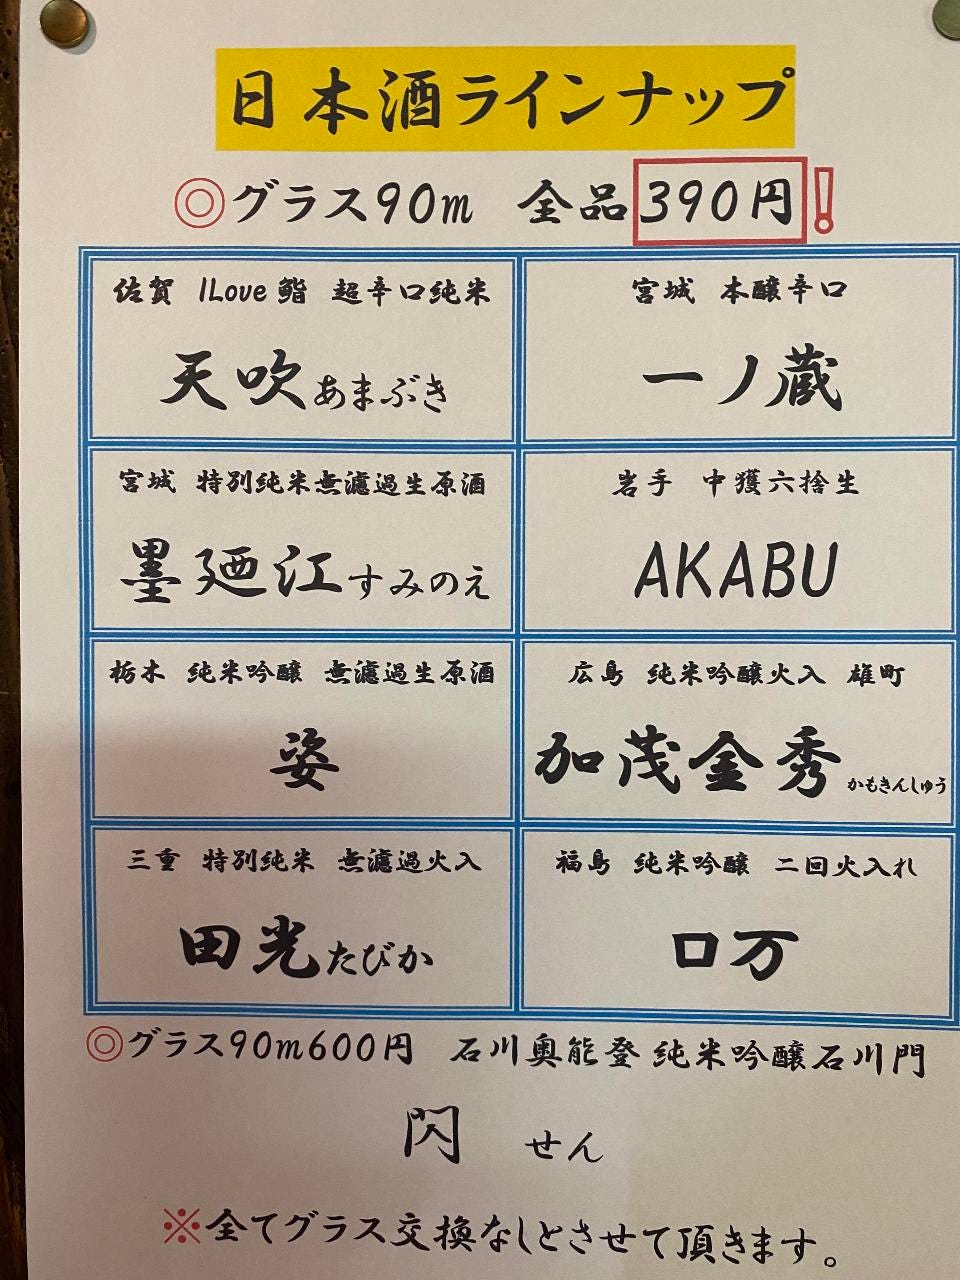 日本酒ラインナップ
◎グラス90m 全品390円!
佐賀 ILove鮨 超辛口純米
天吹あまぶき
宮城 本醸辛口
一ノ蔵
宮城 特別純米無濾過生原酒
墨廼江すみのえ
岩手 中獲六捨生
AKABU
栃木 純米吟醸 無濾過生原酒
姿
広島 純米吟醸火入 雄町
加茂金秀かもきんしゅう
三重 特別純米 無濾過火入
田光たびか
福島 純米吟醸 二回火入れ
口万
◎グラス90m600円 石川奥能登純米吟醸石川門
閃 せん
※全てグラス交換なしとさせて頂きます。